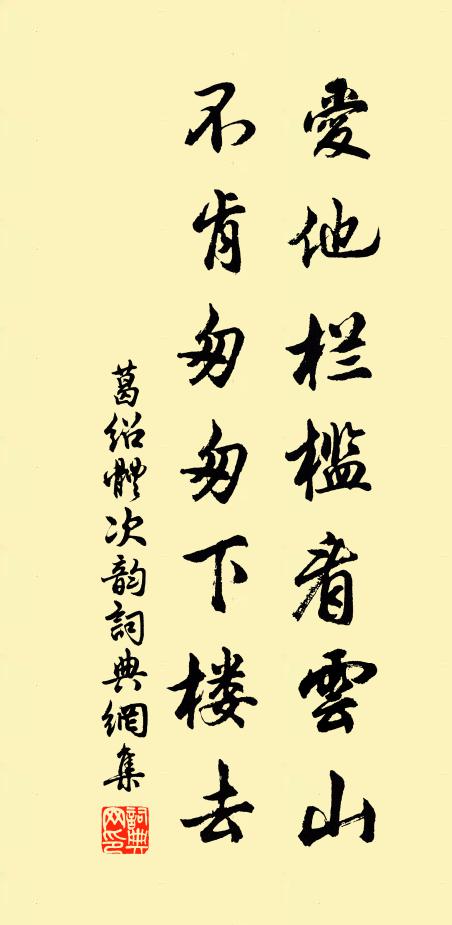 愛他栏槛看雲山
不肯匆匆下楼去
葛绍體次韵詞典網集
詞典網印